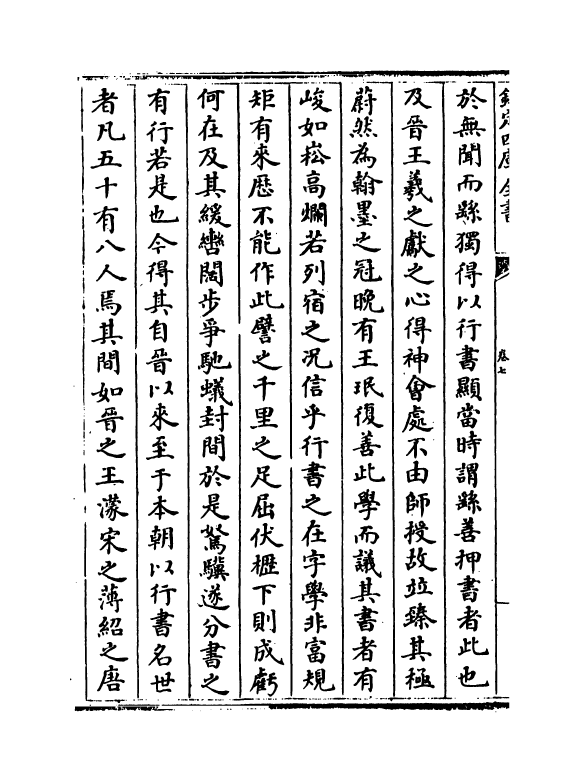 欽定四庫全書
卷七
於無聞而繇獨得以行書顯當時謂繇善押書者此也
及晉王羲之獻之心得神會處不由師授故竝臻其極
蔚然為翰墨之冠晚有王珉復善此學而議其書者有
峻如崧高爛若列宿之況信乎行書之在字學非富規
矩有來歴不能作此譬之千里之足屈伏櫪下則成虧
何在及其緩轡闊步爭馳蟻封間於是駑驥遂分書之
有行若是也今得其自晉以來至于本朝以行書名世
者凡五十有八人焉其間如晉之王濛宋之薄紹之唐